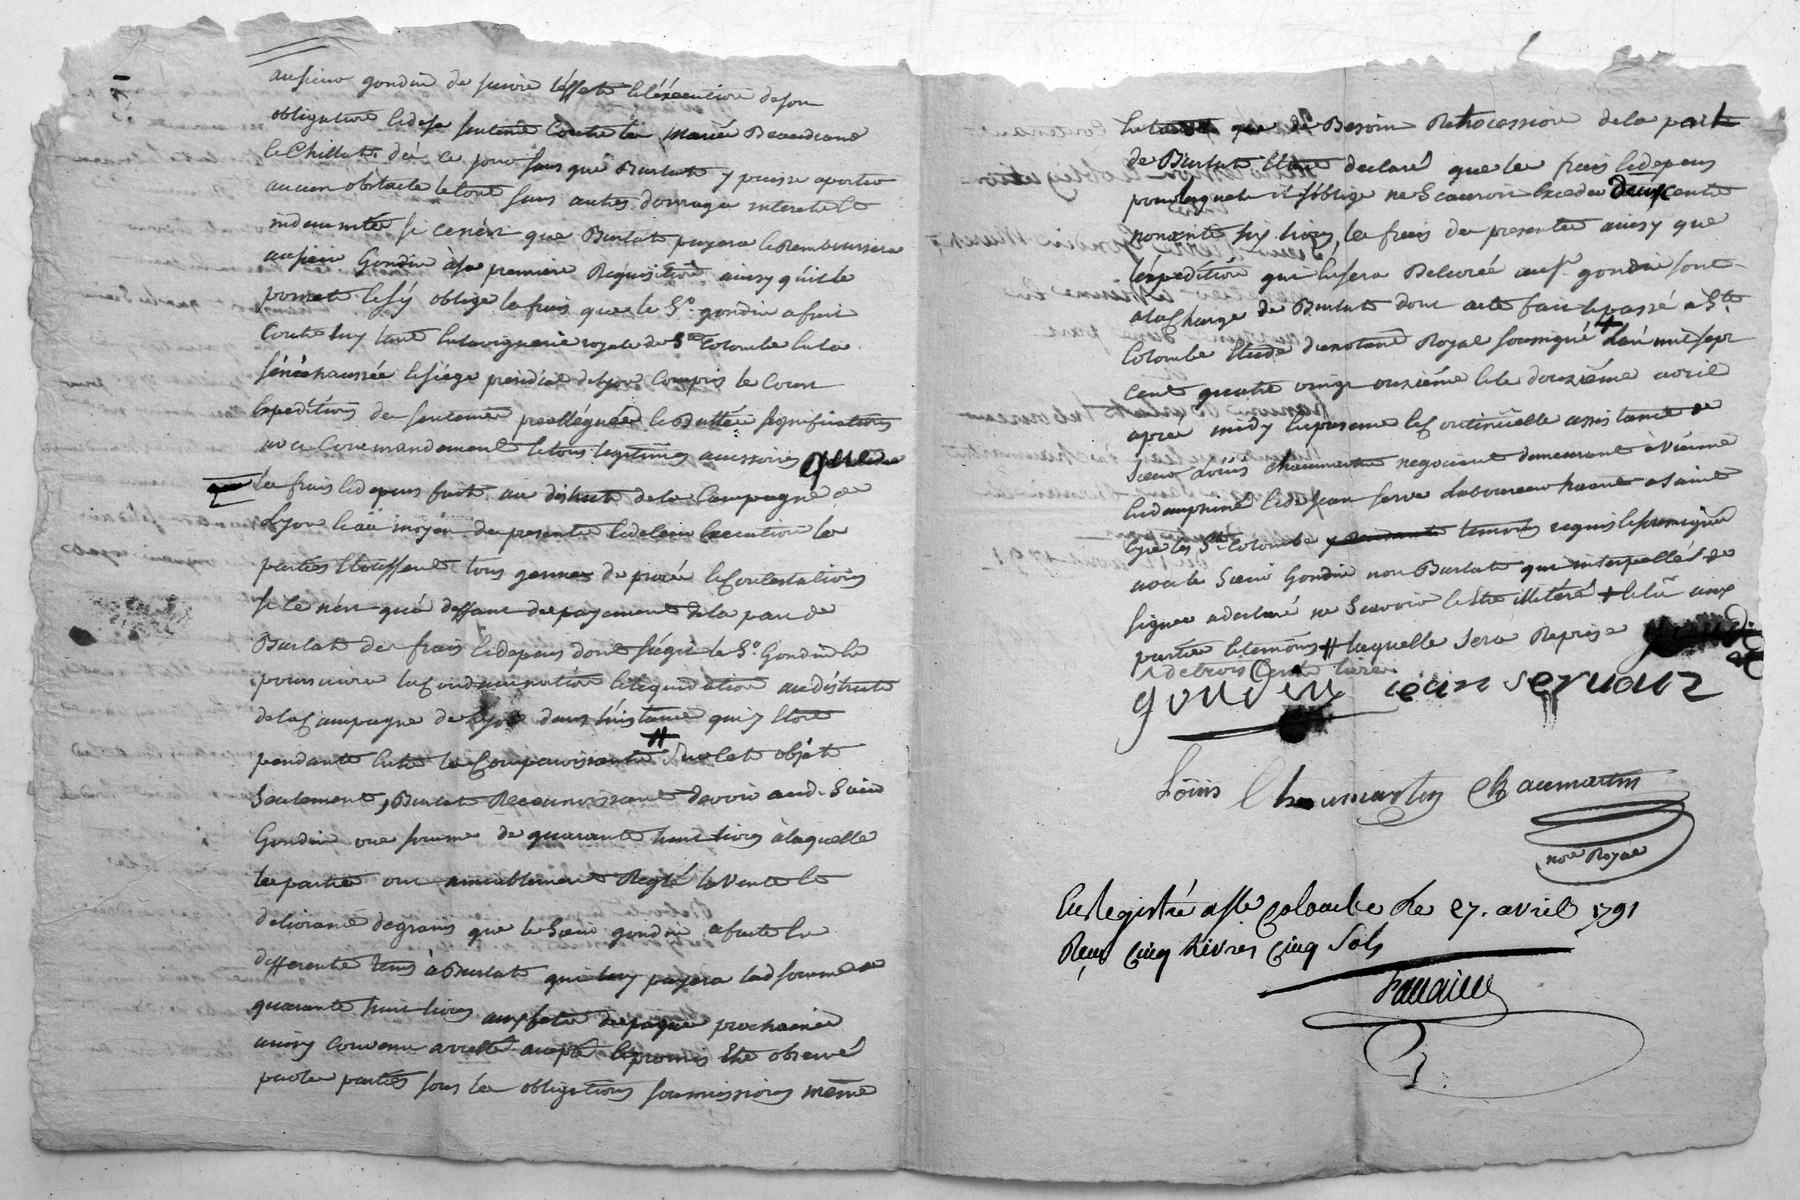 au sieur gondin de suivre l'effet et l'exécution de son
obligature et de sa sentence contre la mariée
et Chillet dès ce jour sans que Burlat y puisse aporter
aucun obstacle le tout sans autres domage interets et
indemnités si ce n'est que Burlat payera et Remboursera
au sieur Gondin à sa premiere Requisition ainsy qu'il le
promet et s'y oblige les frais que le Sr. gondin a fait
contre luy tant en la viguerie royale de Ste Colombe en la
sénéchaussée et siége presidial de Lyon compris le Coust
Expeditions de sentence préalléguée et Significations
avec Commandement et tous legitimes accessoires que
les frais et depens faits au district de la Campagne de
Lyon et au moyen des presentes et de leur execution les
parties Etouffent tous germes de procès et Contestations
si ce n'est qu'à deffaut de payement de la part de
Burlat des frais et depens dont s'agit le Sr. Gondin en
poursuivra la Condamnation et liquidation au district
de la Campagne de Lyon dans l'instance qui y etoit
pendante entre les Comparoissants # Sur cet objet
Seulement, Burlat Reconnoissant devoir aud. Sieur
Gondin une somme de quarante huit livres à laquelle
les parties ont amiablement Reglé la vente et
délivrance de grains que le Sieur gondin a faite en
differents tems à Burlat qui luy payera lad somme de
quarante huit livres aux fêtes de paque prochaines
ainsy convenu arretté accepté et promis etre observé
par les parties sous les obligations soumissions même
que de Besoin Retrocession de la part
de Burlat declaré que les frais et depens
pour lesquels il s'oblige ne Scauroit Exceder deux cents
nonante six livres, les frais des presentes ainsy que
l'expedition qui en sera Delivrée au Sr. gondin sont
à la Charge de Burlat dont acte fait et passé a Ste
Colombe Etude du notaire Royal soussigné + l'an mil sept
cent quatre vingt onzième et le douzième avril
après midy en presence et Continüelle assistance de
Sieur Loüis Chaumartin negociant demeurant a Vienne
en dauphiné et de Jean Servo Laboureur a Saint
Cyr les Ste Colombe temoins requis et soussignés
avec le Sieur Gondin non Burlat qui interpellé de
signer a declaré ne Scavoir et etre illiteré + et lû aux
parties et temoins # laquelle sera Reprise
+ de trois Cent livres
gondin jean servaux
Loüis Chaumartin Chaumartin
nore Royal
Enregistré a Ste Colombe le 27. avril 1791
Reçu Cinq Livres Cinq Sols